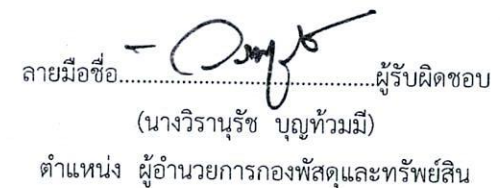 ลายมือชื่อ....................................ผู้รับผิดชอบ
(นางวิรานุรัช บุญท้วมมี)
ตำแหน่ง ผู้อำนวยการกองพัสดุและทรัพย์สิน